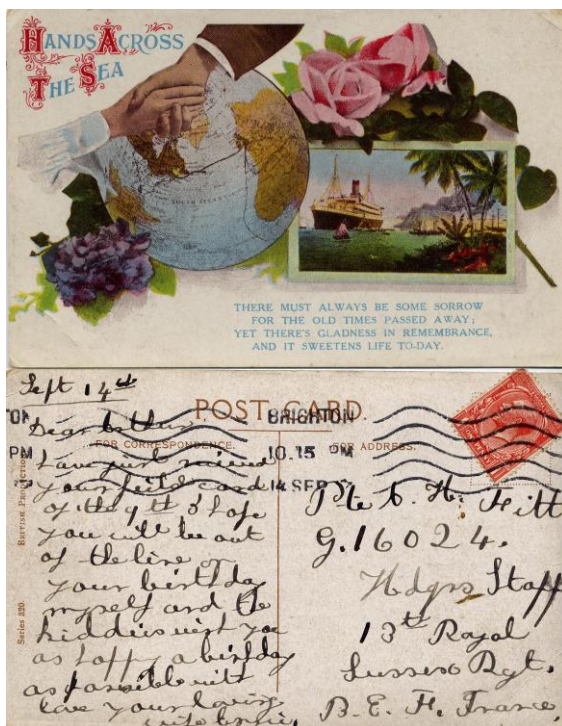 HANDS ACROSS
THE SEA
SOUTH ATLANTIC
THERE MUST ALWAYS BE SOME SORROW
FOR THE OLD TIMES PASSED AWAY;
YET THERE'S GLADNESS IN REMEMBRANCE,
AND IT SWEETENS LIFE TO-DAY.
Sept 14th
POST CARD.
TON
PM
BRIGHTON
10.15 PM
14 SEP
FOR CORRESPONDENCE.
FOR ADDRESS.
BRITISH PRODUCTION
Series 320.
Dear Arthur
have just received
your field card
of the 9th I hope
you will be out
of the line on
your birthday
myself and the
kiddies wish you
as happy a birthday
as possible with
love your loving
wife
Pte A. H. Fitt
G.16024.
Hdqrs Staff
13th Royal
Sussex Rgt.
B.E.F. France.